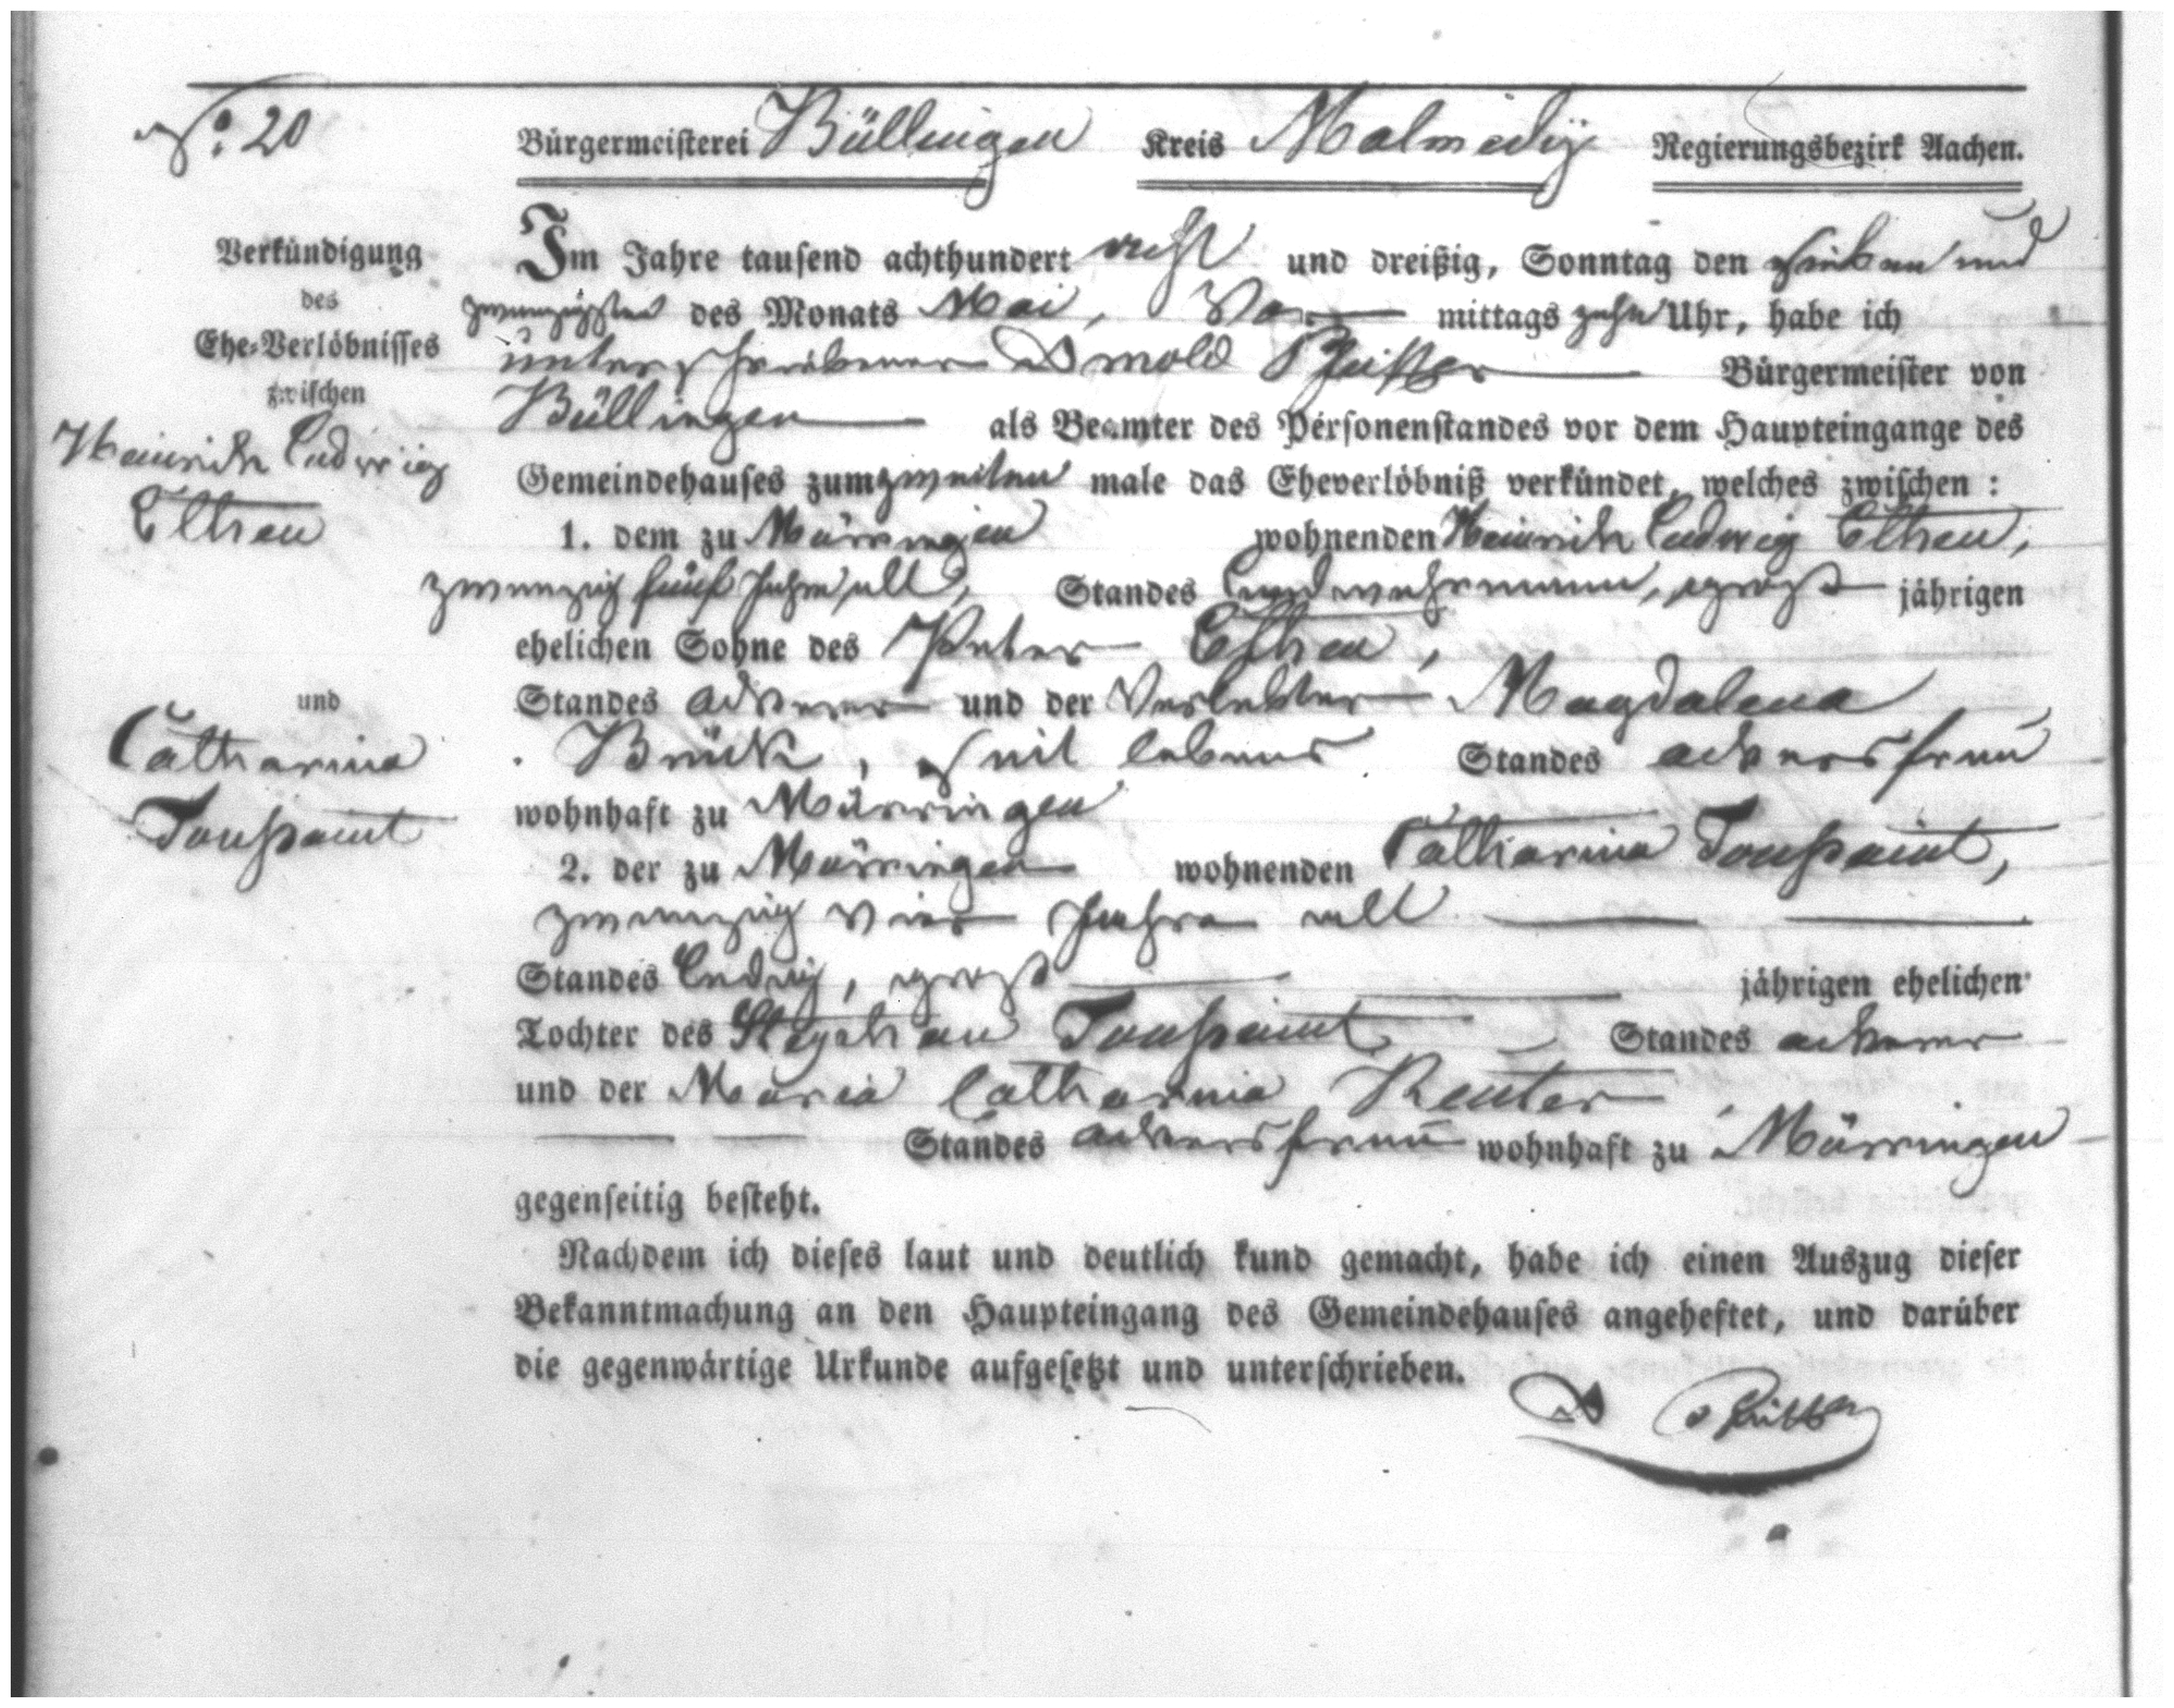 No. 20
Bürgermeisterei Büllingen Kreis Malmedy Regierungsbezirk Aachen.
Verkündigung
des
Ehe-Verlöbnisses
zwischen
Heinrich Ludwig
Elhen
und
Catharina
Toussaint
Im Jahre tausend achthundert acht und dreißig, Sonntag den sieben und
zwanzigsten des Monats Mai, Vor mittags zehn Uhr, habe ich
unterschriebener Arnold Pfeiffer Bürgermeister von
Büllingen als Beamter des Personenstandes vor dem Haupteingange des
Gemeindehauses zum zweiten male das Eheverlöbniß verkündet, welches zwischen :
1. dem zu Mürringen wohnenden Heinrich Ludwig Elhen,
zwanzig fünf Jahre alt, Standes Landwehrmann, groß jährigen
ehelichen Sohne des Peter Elhen,
Standes ackerer und der Verlebter Magdalena
Brück, zeit lebens Standes ackersfrau
wohnhaft zu Mürringen
2. der zu Mürringen wohnenden Catharina Toussaint,
zwanzig vier Jahre alt
Standes ledig, groß jährigen ehelichen
Tochter des Stephan Toussaint Standes ackerer
und der Maria Catharina Reuter
Standes ackersfrau wohnhaft zu Mürringen
gegenseitig besteht.
Nachdem ich dieses laut und deutlich kund gemacht, habe ich einen Auszug dieser
Bekanntmachung an den Haupteingang des Gemeindehauses angeheftet, und darüber
die gegenwärtige Urkunde aufgesetzt und unterschrieben.